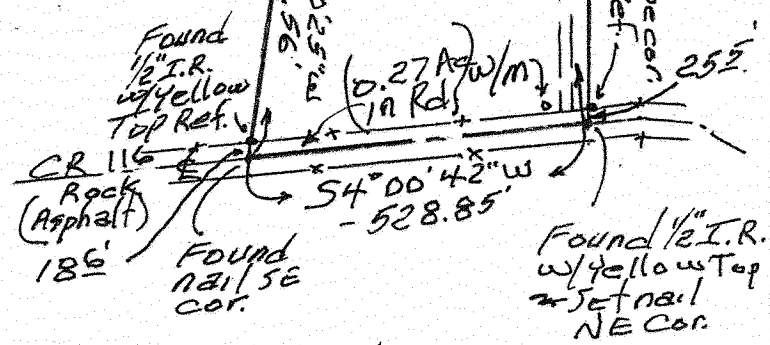 Found
1/2" I.R.
w/Yellow
Top Ref.
0'25"W
56.'
(0.27 Ac
in Rd)
w/m
e cor
et
25 5.'
CR 116 ℄
Rock
(Asphalt)
18 6'
S4°00'42"W
-528.85'
Found
nail SE
cor.
Found 1/2" I.R.
w/Yellow Top
Set nail
NE Cor.